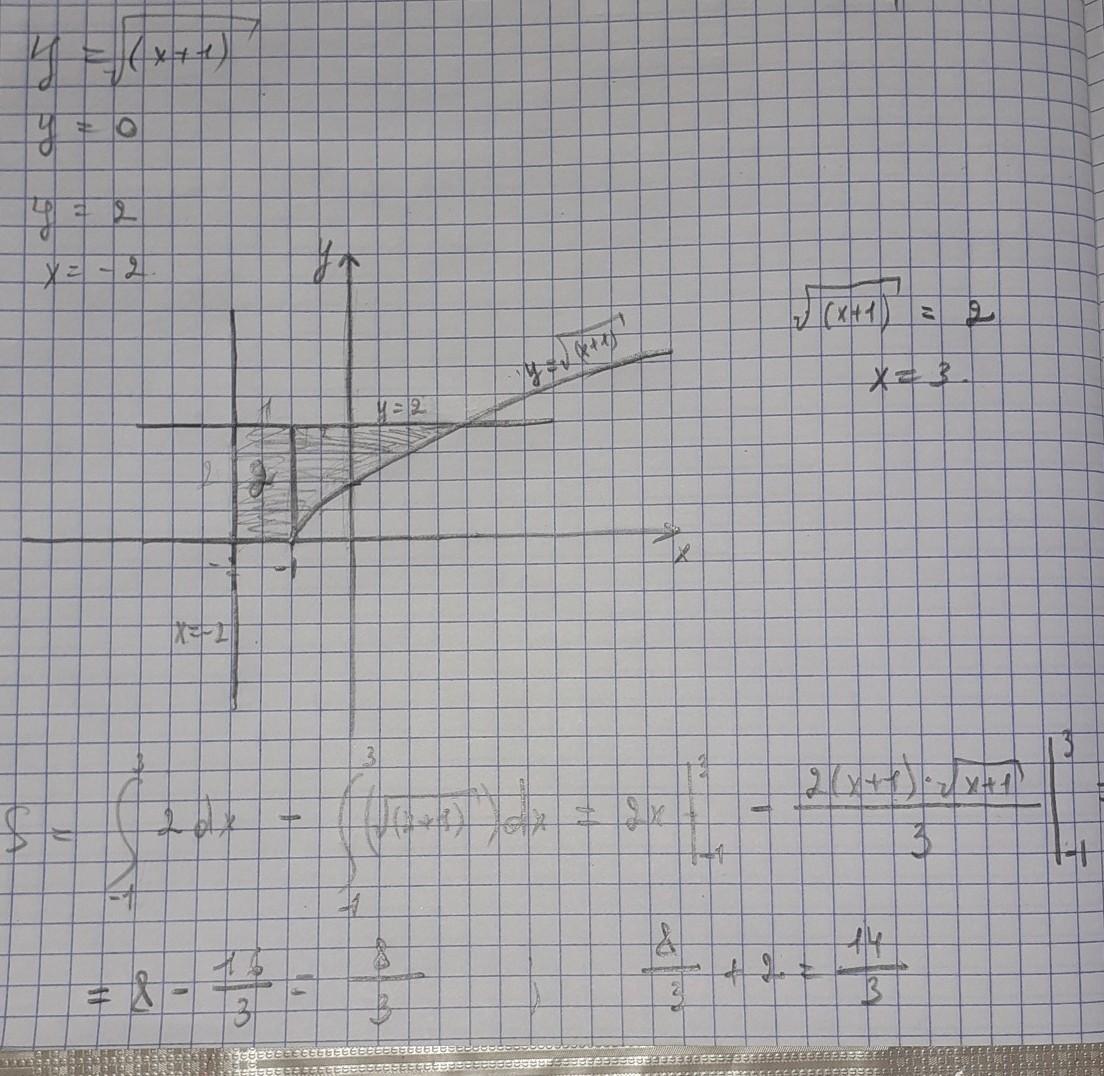 y = √(x+1)
y = 0
y = 2
x = -2
y
√(x+1) = 2
x = 3.
y = √(x+1)
1
y = 2
2
2
x
-1
x = -2
S = ∫_{-1}^{3} 2 dx - ∫_{-1}^{3} (√(x+1)) dx = 2x |_{-1}^{3} - 2(x+1)·√x+1 / 3 |_{-1}^{3} =
= 8 - 16/3 = 8/3 ; 8/3 + 2 = 14/3